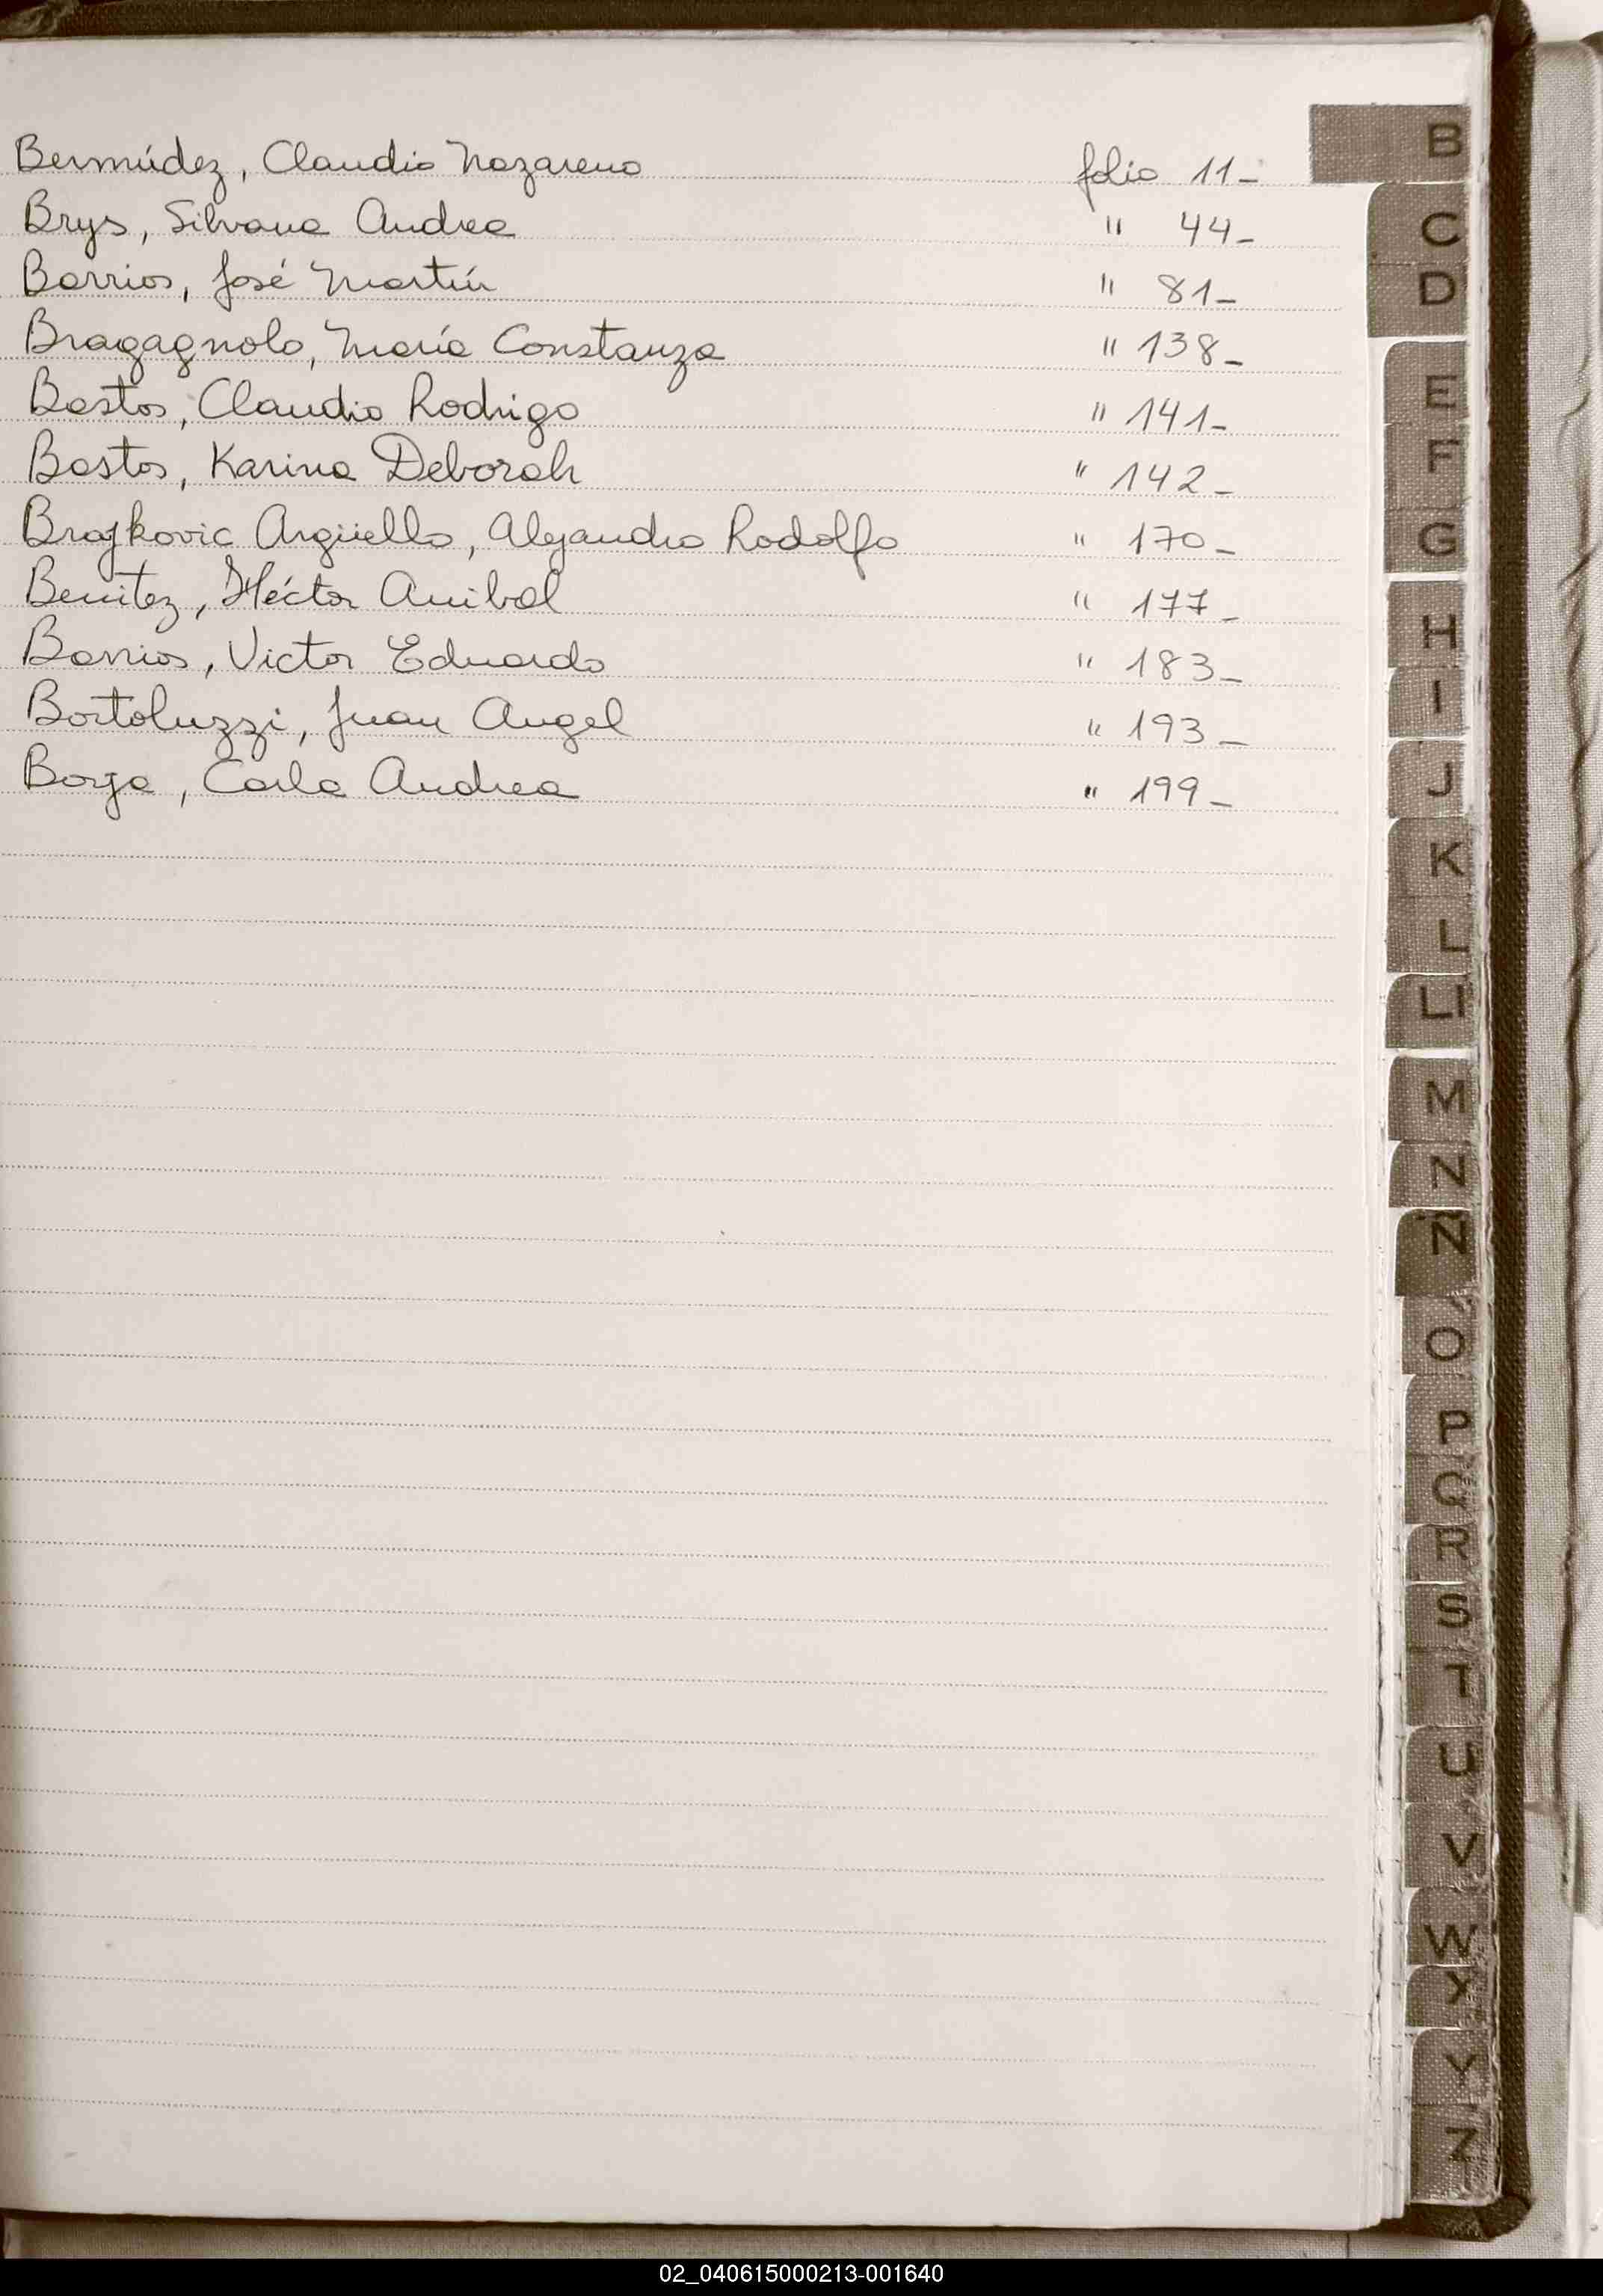 Bermúdez, Claudio Nazareno folio 11-
Brys, Silvana Andrea " 44-
Barrios, José Martín " 81-
Bragagnolo, María Constanza " 138-
Bastos, Claudio Rodrigo " 141-
Bastos, Karina Deborah " 142-
Brajkovic Argüello, Alejandro Rodolfo " 170-
Benitez, Héctor Anibal " 177-
Barrios, Victor Eduardo " 183-
Bortoluzzi, Juan Angel " 193-
Borja, Carla Andrea " 199-
B
C
D
E
F
G
H
I
J
K
L
Ll
M
N
Ñ
O
P
Q
R
S
T
U
V
W
X
Y
Z
02_040615000213-001640